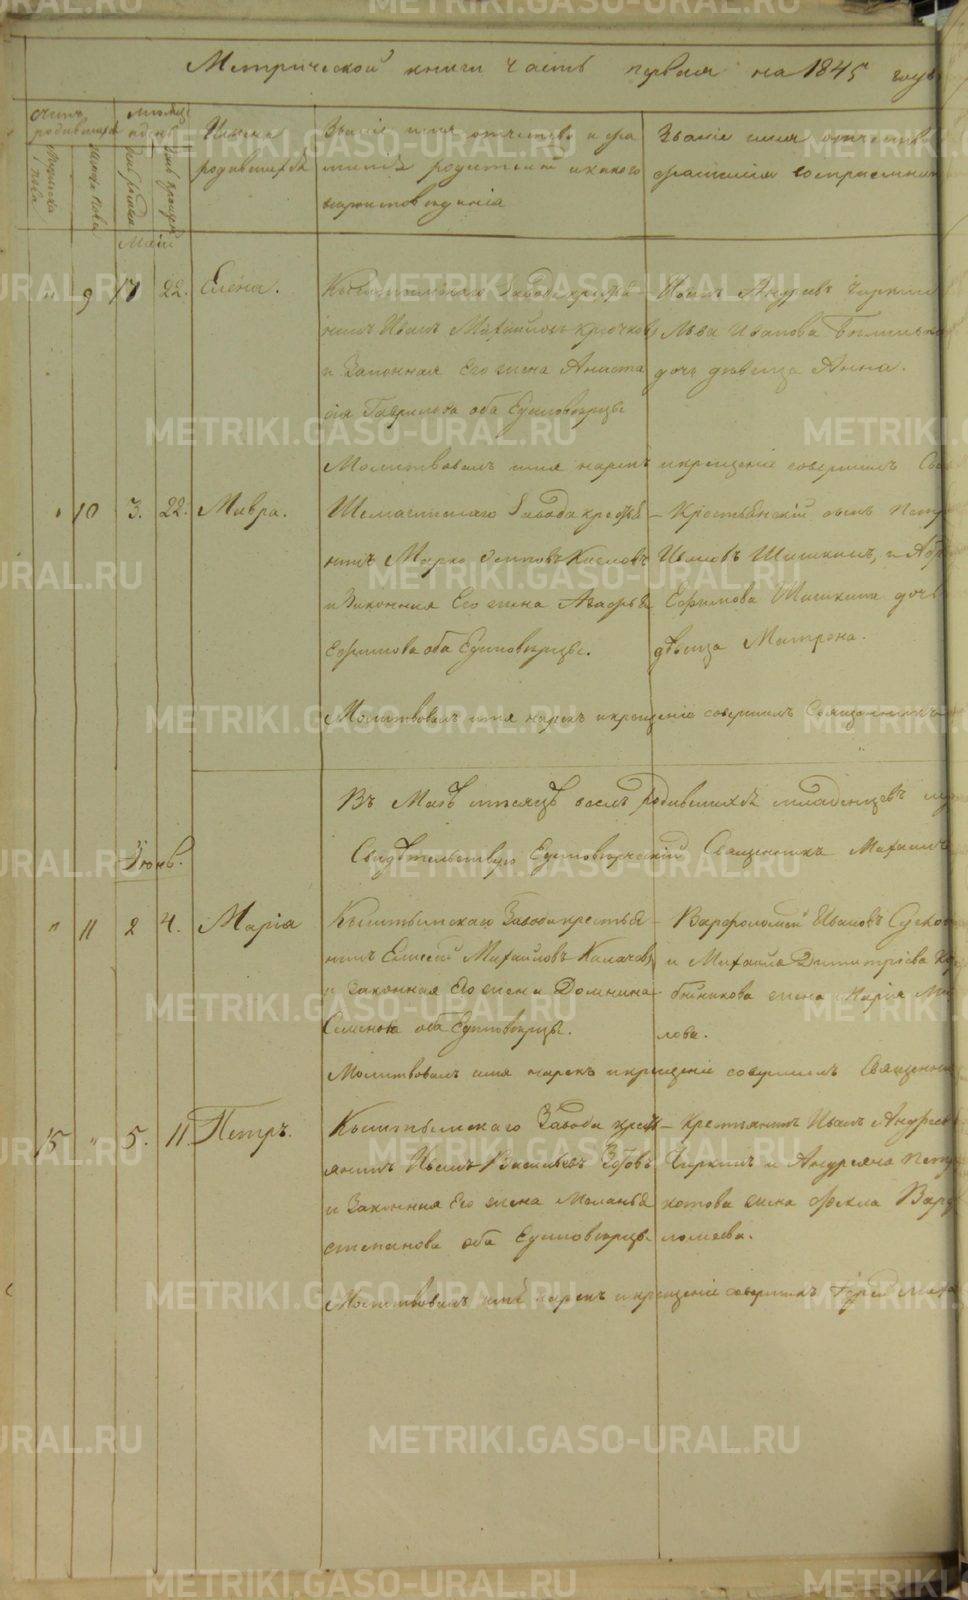 Метрической книги Часть первая на 1845 годъ
Счетъ родившихся
Мѣсяцъ и день
Имена родившихся
Званіе имя отчество и фа
миліе родителей и какого
вероисповеданія
Званіе имя отчество
фамилія воспріемник
Мужеска пола
Женска пола
День рожден
День крещен
Маій
" 9 17 22. Елена.
Кыштымскаго Завода крестья
нинъ Иванъ Михайловъ Крючковъ
и Законная его жена Анаста
сія Гаврилова оба Единоверцы
Иванъ Андреевъ Чиркин
Льва Иванова
дочь девица Анна.
Молитвовалъ имя нарекъ и крещеніе совершилъ Св
" 10 3. 22. Мавра.
Шемахинскаго Завода крестья
нинъ Марко Осиповъ Кисловъ
и Законная Его жена
Ефимова оба Единоверцы.
Крестьянскій сынъ Петр
Ивановъ Шишкинъ, и
Ефимова Шишкина дочь
дѣвица Матрона.
Молитвовалъ имя нарекъ и крещеніе совершилъ Священникъ
Въ Маѣ месяцѣ всехъ родившихся младенцевъ
Свидѣтельствую Единоверческій Священникъ Михаилъ
Іюнь.
" 11 2 4. Марія
Кыштымскаго Завода крестья
нинъ Елисей Михайловъ Калачевъ
и Законная Его жена Домнина
Семенова оба Единоверцы.
Варфоломей Ивановъ
и Михаила Димитріева
жена Марія
лова.
Молитвовалъ имя нарекъ и крещеніе совершилъ Священни
15 " 5. 11. Петръ.
Кыштымскаго Завода крест
янинъ Иванъ Васильевъ Зотовъ
и Законная Его жена Меланья
Степанова оба Единоверцы
Крестянинъ Иванъ Андреев
Чиркинъ и Андреяна Петр
жена Фекла Варфо
ломеева.
Молитвовалъ имя нарекъ и крещеніе совершилъ Іерей Миха
METRIKI.GASO-URAL.RU